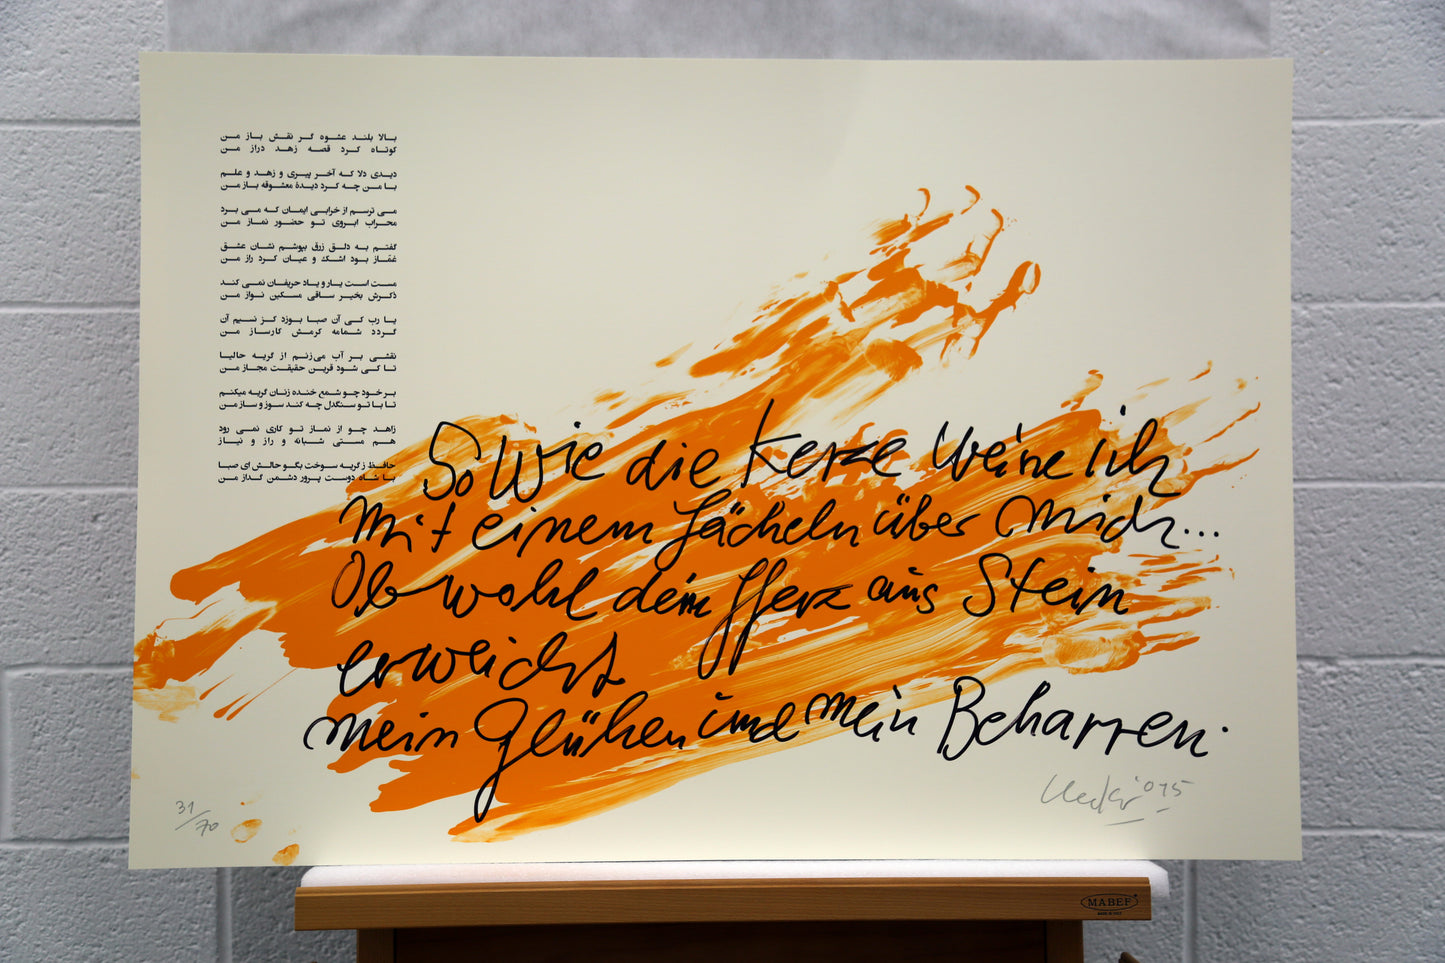 بالا بلند عشوه گر نقش باز من
کوتاه کرد قصه زهد دراز من
دیدی دلا که آخر پیری و زهد و علم
با من چه کرد دیدهٔ معشوقه باز من
می ترسم از خرابی ایمان که می برد
محراب ابروی تو حضور نماز من
گفتم به دلق زرق بپوشم نشان عشق
غمّاز بود اشک و عیان کرد راز من
مست است یار و یاد حریفان نمی کند
ذکرش بخیر ساقی مسکین نواز من
یا رب کی آن صبا بوزد کز نسیم آن
گردد شمامه کرمش کارساز من
نقشی بر آب می‌زنم از گریه حالیا
تا کی شود قرین حقیقت مجاز من
بر خود چو شمع خنده زنان گریه میکنم
تا با تو سنگدل چه کند سوز و ساز من
زاهد چو از نماز تو کاری نمی رود
هم مستی شبانه و راز و نیاز
حافظ ز گریه سوخت بگو حالش ای صبا
با شاه دوست پرور دشمن گداز من
So Wie die Kerze Weine ich
Mit einem Lächeln über Mich...
Obwohl dein Herz aus Stein
erweicht
mein Glühen und mein Beharren.
31/70
Uecker '015
MABEF
MADE IN ITALY